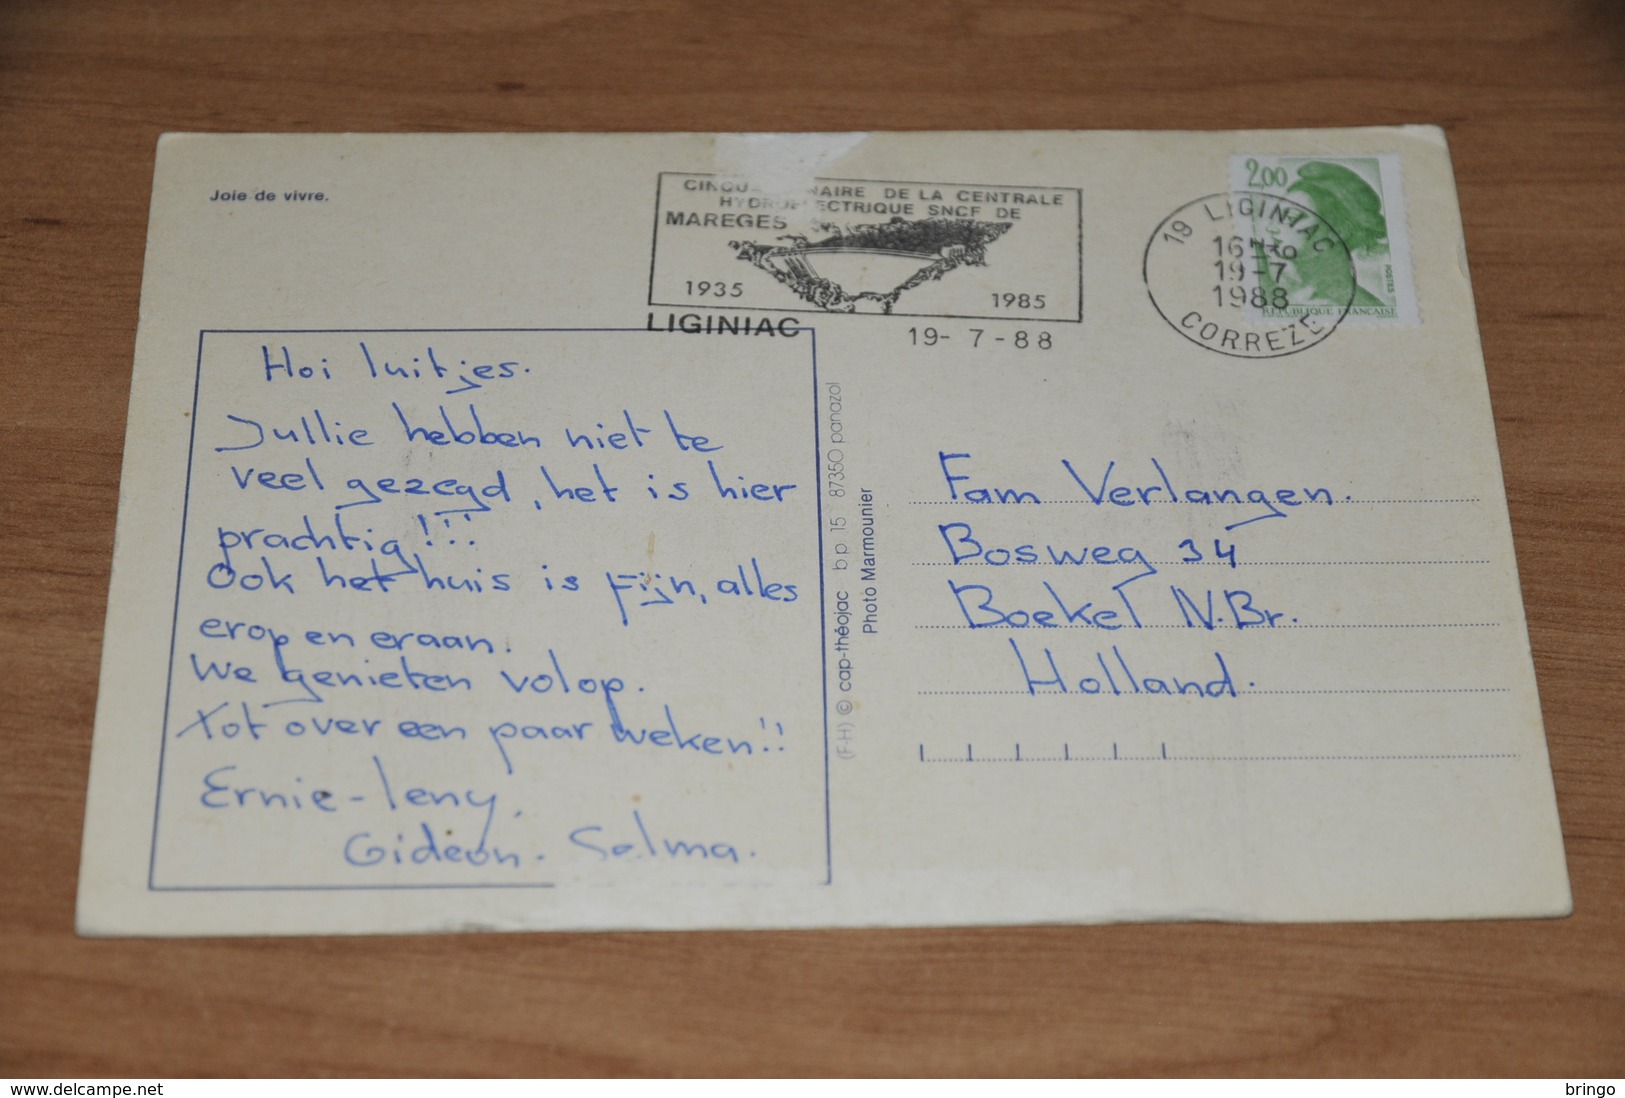 Joie de vivre.
CINQU NAIRE DE LA CENTRALE
HYDROELECTRIQUE SNCF DE
MAREGES
1935
1985
LIGINIAC
19- 7 -88
2,00
POSTES
REPUBLIQUE FRANCAISE
19 LIGINIAC
16
19-7
1988
CORREZE
Hoi luitjes.
Jullie hebben niet te
veel gezegd, het is hier
prachtig!!!
Ook het huis is fijn, alles
erop en eraan.
We genieten volop.
Tot over een paar weken!!
Ernie-leny.
Gideon. Selma.
(F-H) © cap-théojac bp 15 87350 panazol
Photo Marmounier
Fam Verlangen.
Bosweg 34
Boekel N.Br.
Holland.
www.delcampe.net
bringo